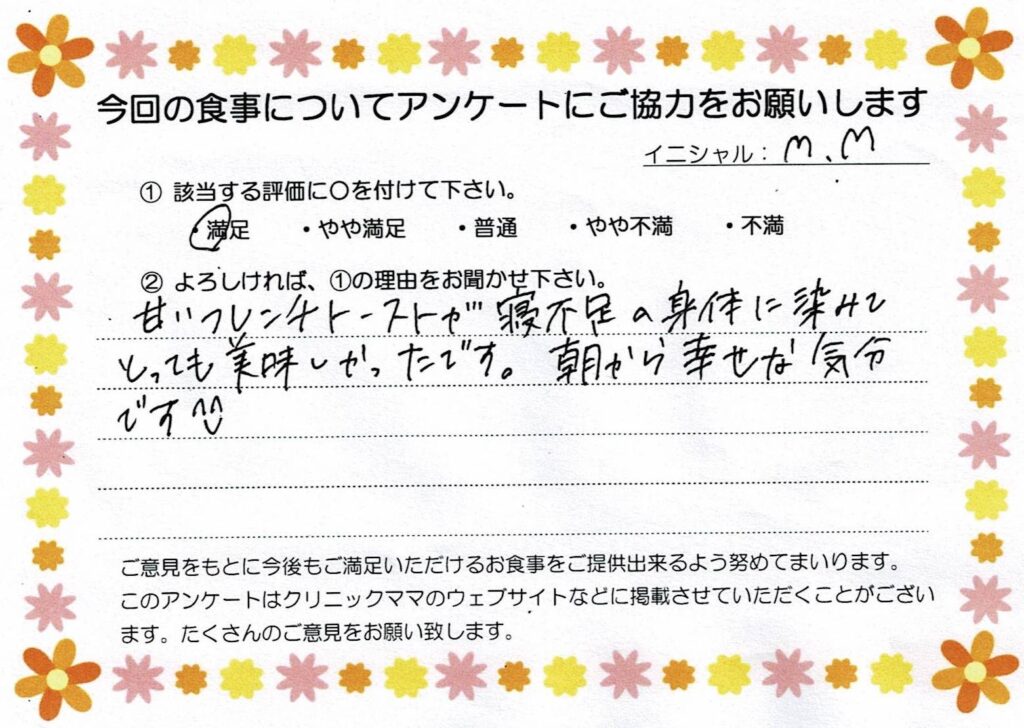 今回の食事についてアンケートにご協力をお願いします
イニシャル： M.M
① 該当する評価に〇を付けて下さい。
・満足 ・やや満足 ・普通 ・やや不満 ・不満
② よろしければ、①の理由をお聞かせ下さい。
甘いフレンチトーストが寝不足の身体に染みて
とっても美味しかったです。朝から幸せな気分
です
ご意見をもとに今後もご満足いただけるお食事をご提供出来るよう努めてまいります。
このアンケートはクリニックママのウェブサイトなどに掲載させていただくことがござい
ます。たくさんのご意見をお願い致します。